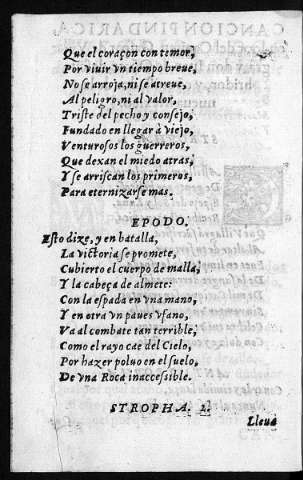 Que el coraçon con temor,
Por viuir vn tiempo breue,
No se arroja, ni se atreue,
Al peligro, ni al valor,
Triste del pecho y consejo,
Fundado en llegar à viejo,
Venturosos los guerreros,
Que dexan el miedo atras,
Y se arriscan los primeros,
Para eternizarse mas.
EPODO,
Esto dize, y en batalla,
La victoria se promete,
Cubierto el cuerpo de malla,
Y la cabeça de almete:
Con la espada en vna mano,
Y en otra vn paues vfano,
Va al combate tan terrible,
Como el rayo cae del Cielo,
Por hazer poluo en el suelo,
De vna Roca inaccessible.
STROPHA. 2.
Lleua